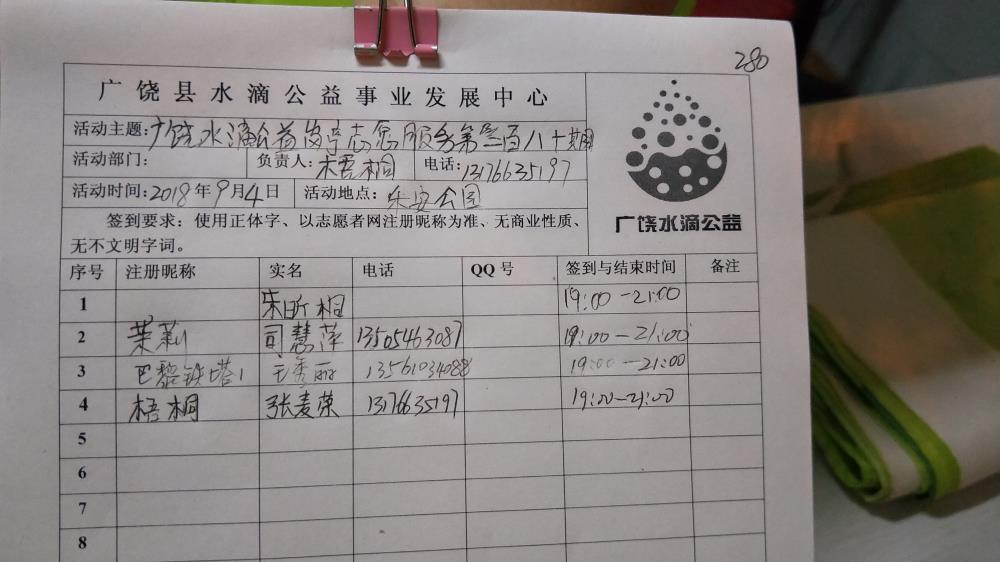 280
广饶县水滴公益事业发展中心
活动主题:广饶水滴公益岗亭志愿服务第贰百八十期
活动部门: 负责人:梧桐 电话:13176635197
活动时间:2018年9月4日 活动地点:乐安公园
签到要求:使用正体字、以志愿者网注册昵称为准、无商业性质、
无不文明字词。
广饶水滴公益
序号 注册昵称 实名 电话 QQ号 签到与结束时间 备注
1 宋昕桐 19:00-21:00
2 茉莉 司慧萍 13505463087 19:00-21:00
3 巴黎铁塔1 王秀丽 19:00-21:00
4 梧桐 张麦荣 13176635197 19:00-21:00
5
6
7
8